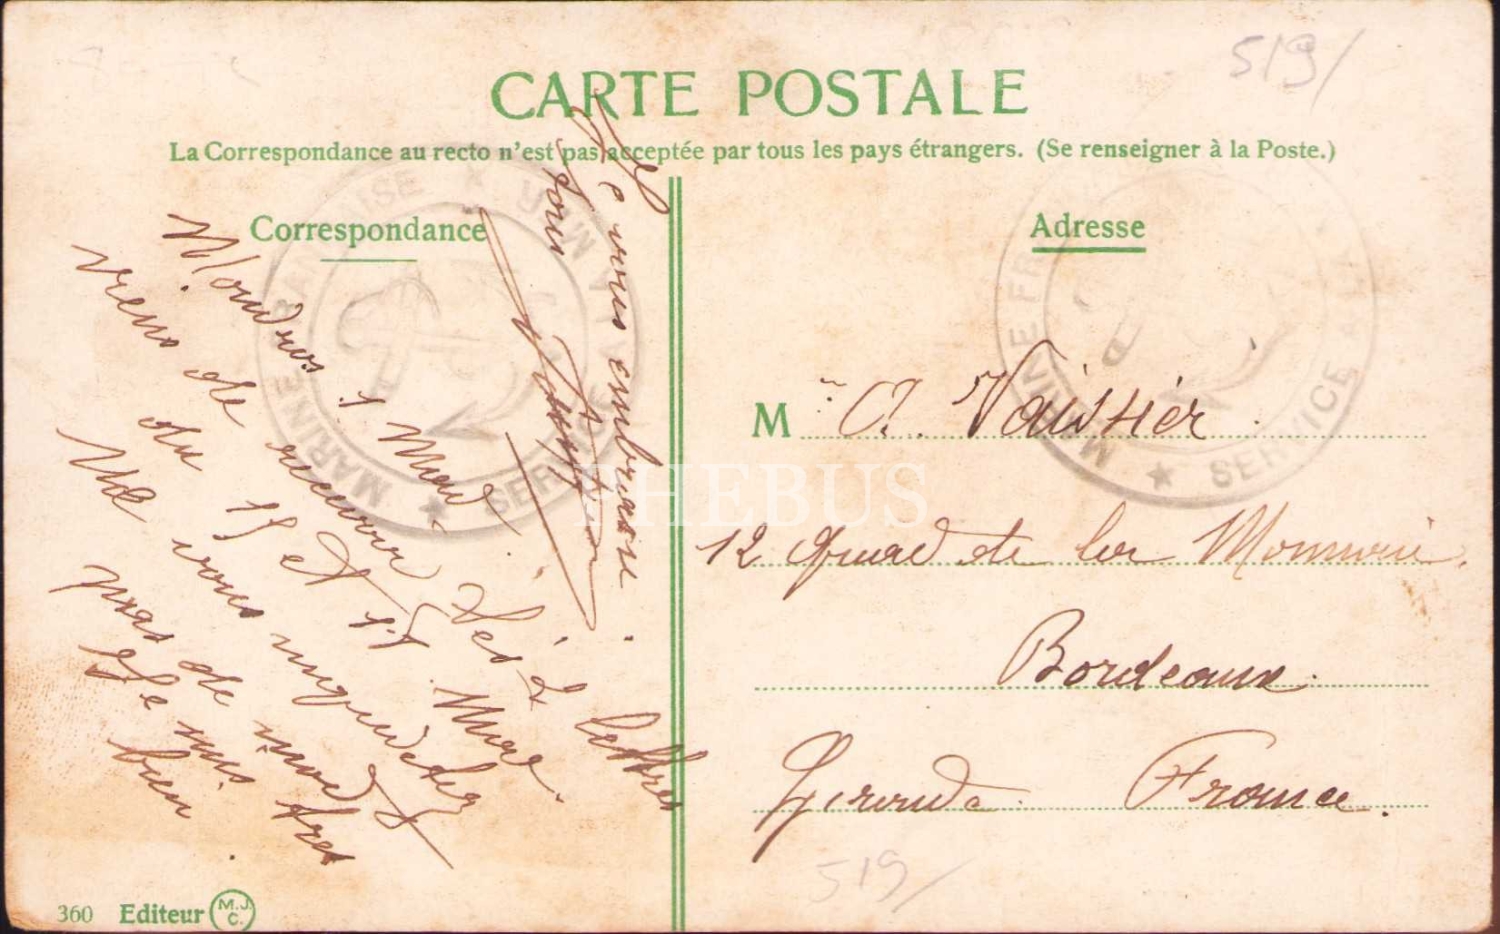 519/
CARTE POSTALE
La Correspondance au recto n'est pas acceptée par tous les pays étrangers. (Se renseigner à la Poste.)
Correspondance
Moudros 1 Mai
viens de recevoir les 2 lettres
du 15 et 17 Mars.
Ne vous inquietez
pas de moi
Je suis tres
bien
Je vous embrasse
tous
Adresse
M A. Vaissier
12 Quai de la Monnaie
Bordeaux
Gironde France.
MARINE FRANÇAISE
SERVICE A LA MER
MARINE FRANÇAISE
SERVICE A LA MER
PHEBUS
519/
360 Editeur M.J.C.